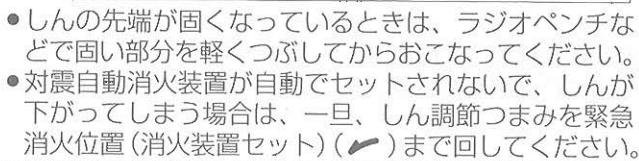 ●しんの先端が固くなっているときは、ラジオペンチな
どで固い部分を軽くつぶしてからおこなってください。
●対震自動消火装置が自動でセットされないで、しんが
下がってしまう場合は、一旦、しん調節つまみを緊急
消火位置(消火装置セット)( )まで回してください。